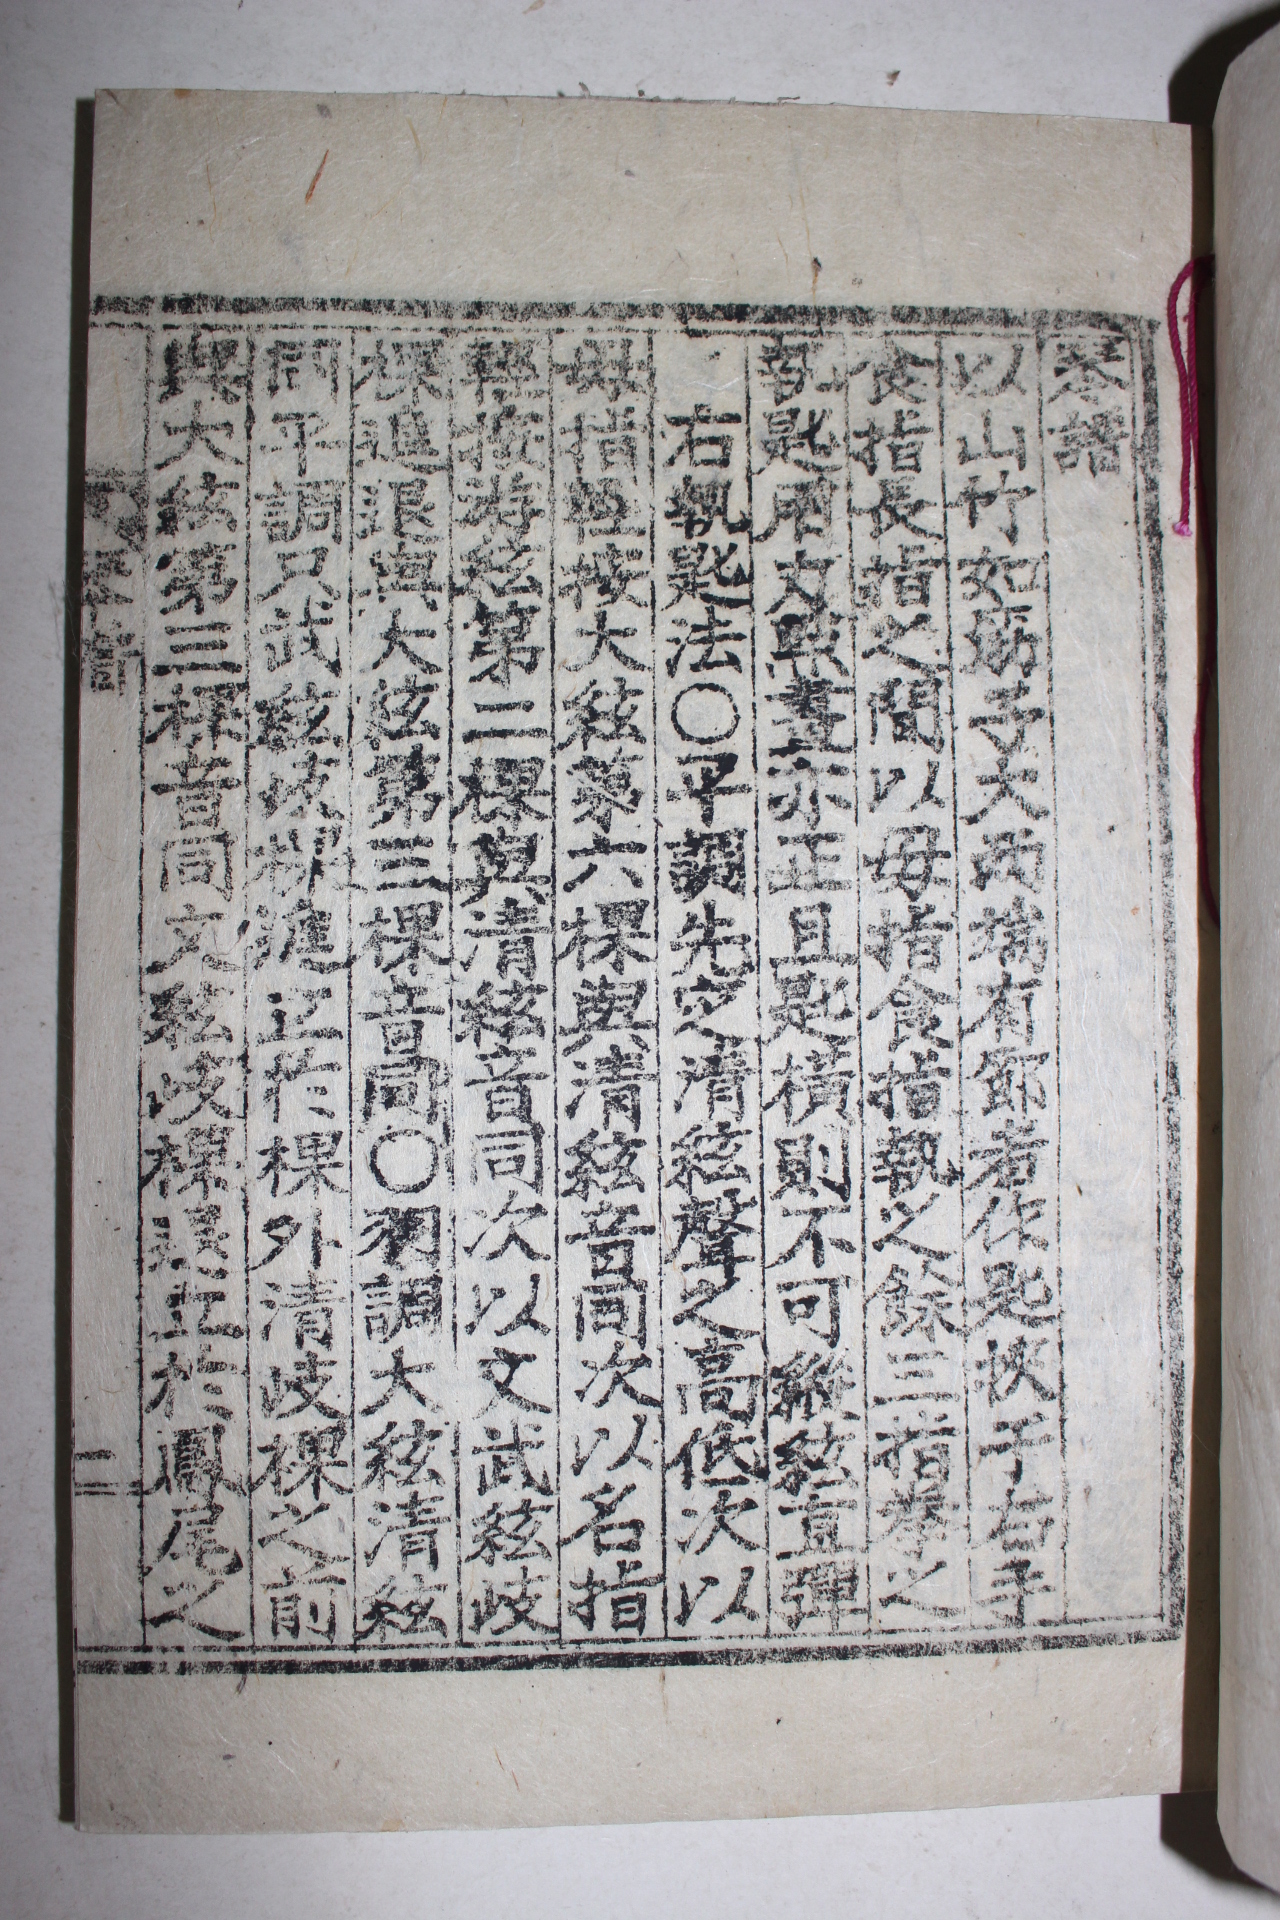 琴譜
以山竹如筯子大而端有節者作匙挾于右手
食指長指之間以母指食指執之餘三指拳之
執匙用力與畫亦正且匙橫則不可縱絃直彈
右執匙法〇平調先定清絃聲之高低次以
母指輕按大絃第六棵與清絃音同次以名指
輕按游絃第二棵與清絃音同次以文武絃歧
棵進退與大絃第三棵音同〇羽調大絃清絃
同平調只武絃歧棵進立於棵外清歧棵之前
與大絃第三棵音同文絃歧棵退立於鳳尾之
二